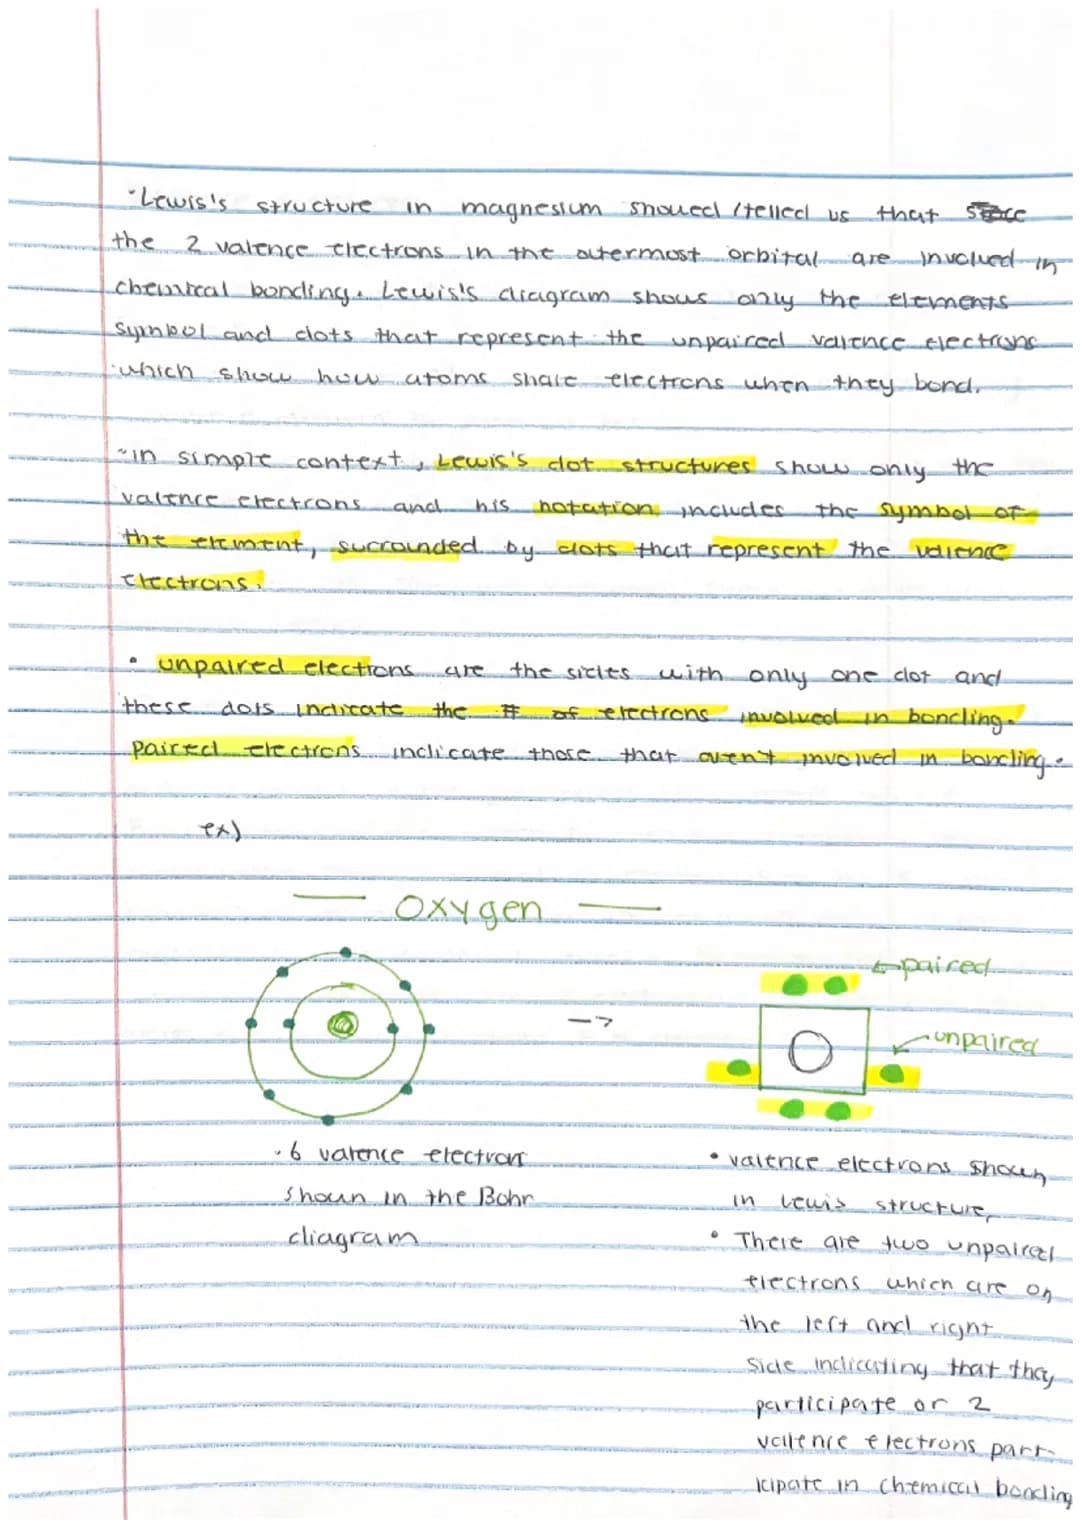 ·Lewis's structure in magnesium showed /telled us that
the 2 valence electrons in the outermost orbital are involved in
chemical bonding. Lewis's diagram shows only the elements
symbol and dots that represent the unpaired valence electrons
which show how atoms share electrons when they bond.
-in simple context, Lewis's dot structures show only the
valence electrons and his notation includes the symbol of
the element, surrounded by dots that represent the valence
electrons.
• unpaired electrons are the sides with only one dot and
these dots indicate the # of electrons involved in bonding.
Paired electrons indicate those that aren't involved in bonding.
ex)
— Oxygen —
←paired
->
unpaired
O
·6 valence electrons
shown in the Bohr
diagram
• valence electrons shown
in Lewis structure,
• There are two unpaired
electrons which are on
the left and right
side indicating that they
participate or 2
valence electrons part-
icipate in chemical bonding